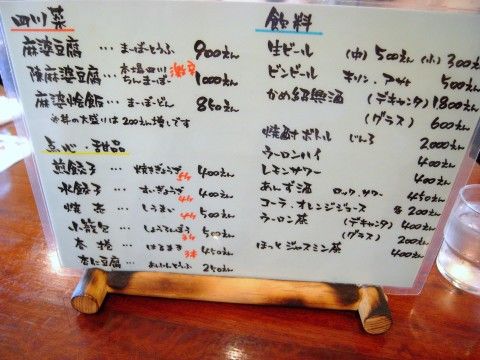 四川菜
麻婆豆腐 … まーぼーとうふ 900えん
陳麻婆豆腐 … 本場四川ちんまーぼー 激辛 1000えん
麻婆烩飯 … まーぼーどん 850えん
※丼の大盛りは200えん増しです
点心・甜品
煎餃子 … 焼きぎょうざ 5ケ 400えん
水餃子 … すいぎょうざ 4ケ 400えん
焼売 … しゅうまい 4ケ 500えん
小籠包 … しょうろんぽう 3ケ 500えん
春捲 … はるまき 3本 450えん
杏仁豆腐 … あんにんとうふ 250えん
飲料
生ビール (中) 500えん (小) 300えん
ビンビール キリン・アサヒ 500えん
かめ紹興酒 (デキャンタ) 1800えん
(グラス) 600えん
焼酎ボトル じんろ 2000えん
ウーロンハイ 400えん
レモンサワー 400えん
あんず酒 ロック、サワー 450えん
コーラ、オレンジジュース 各200えん
ウーロン茶 (デキャンタ) 400えん
(グラス) 200えん
ほっとジャスミン茶 400えん